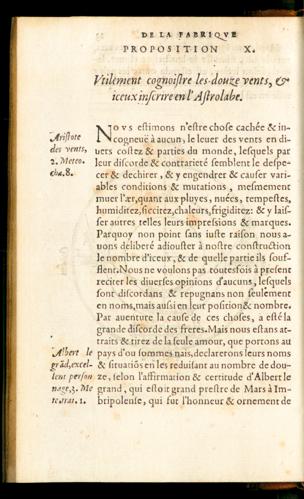 DE LA FABRIQVE
PROPOSITION X.
Vtilement cognoistre les douze vents, &
iceux inscrire en l'Astrolabe.
Aristote
des vents,
2. Meteo.
cha. 8.
NOVS estimons n'estre chose cachée & in-
cogneuë à aucun, le leuer des vents en di-
uers costez & parties du monde, lesquels par
leur discorde & contrarieté semblent le despe-
cer & dechirer, & y engendrer & causer vari-
ables conditions & mutations, mesmement
muer l'ær, quant aux pluyes, nuées, tempestes,
humiditez, siccitez, chaleurs, frigiditez: & y lais-
ser autres telles leurs impressions & marques.
Parquoy non point sans iuste raison nous a-
uons deliberé adiouster à nostre construction
le nombre d'iceux, & de quelle partie ils souf-
flent. Nous ne voulons pas toutesfois à present
reciter les diuerses opinions d'aucuns, lesquels
sont discordans & repugnans non seulement
en noms, mais aussi en leur position & nombre.
Par auenture la cause de ces choses, a esté la
grande discorde des freres. Mais nous estans at-
traits & tirez de la seule amour, que portons au
pays d'ou sommes nais, declarerons leurs noms
& situatiõs en les reduisant au nombre de dou-
ze, selon l'affirmation & certitude d'Albert le
grand, qui estoit grand prestre de Mars à Im-
bripolense, qui fut l'honneur & ornement de
Albert le
grãd, excel-
lent person
nage, 3. Me